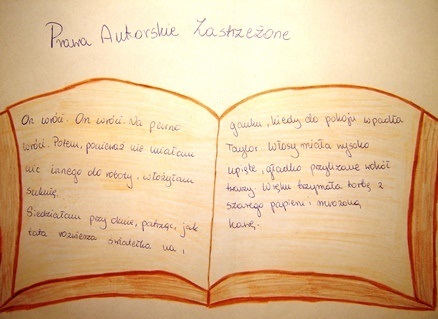 Prawa Autorskie Zastrzeżone
On wróci. On wróci. Na pewno
wróci. Potem, ponieważ nie miałam
nic innego do roboty, włożyłam
suknię.
Siedziałam przy oknie, patrząc, jak
tata rozwiesza światełka na
ganku, kiedy do pokoju wpadła
Taylor. Włosy miała wysoko
upięte, gładko przylizane wokół
twarzy. W ręku trzymała torbę z
szarego papieru i mrożoną
kawę.